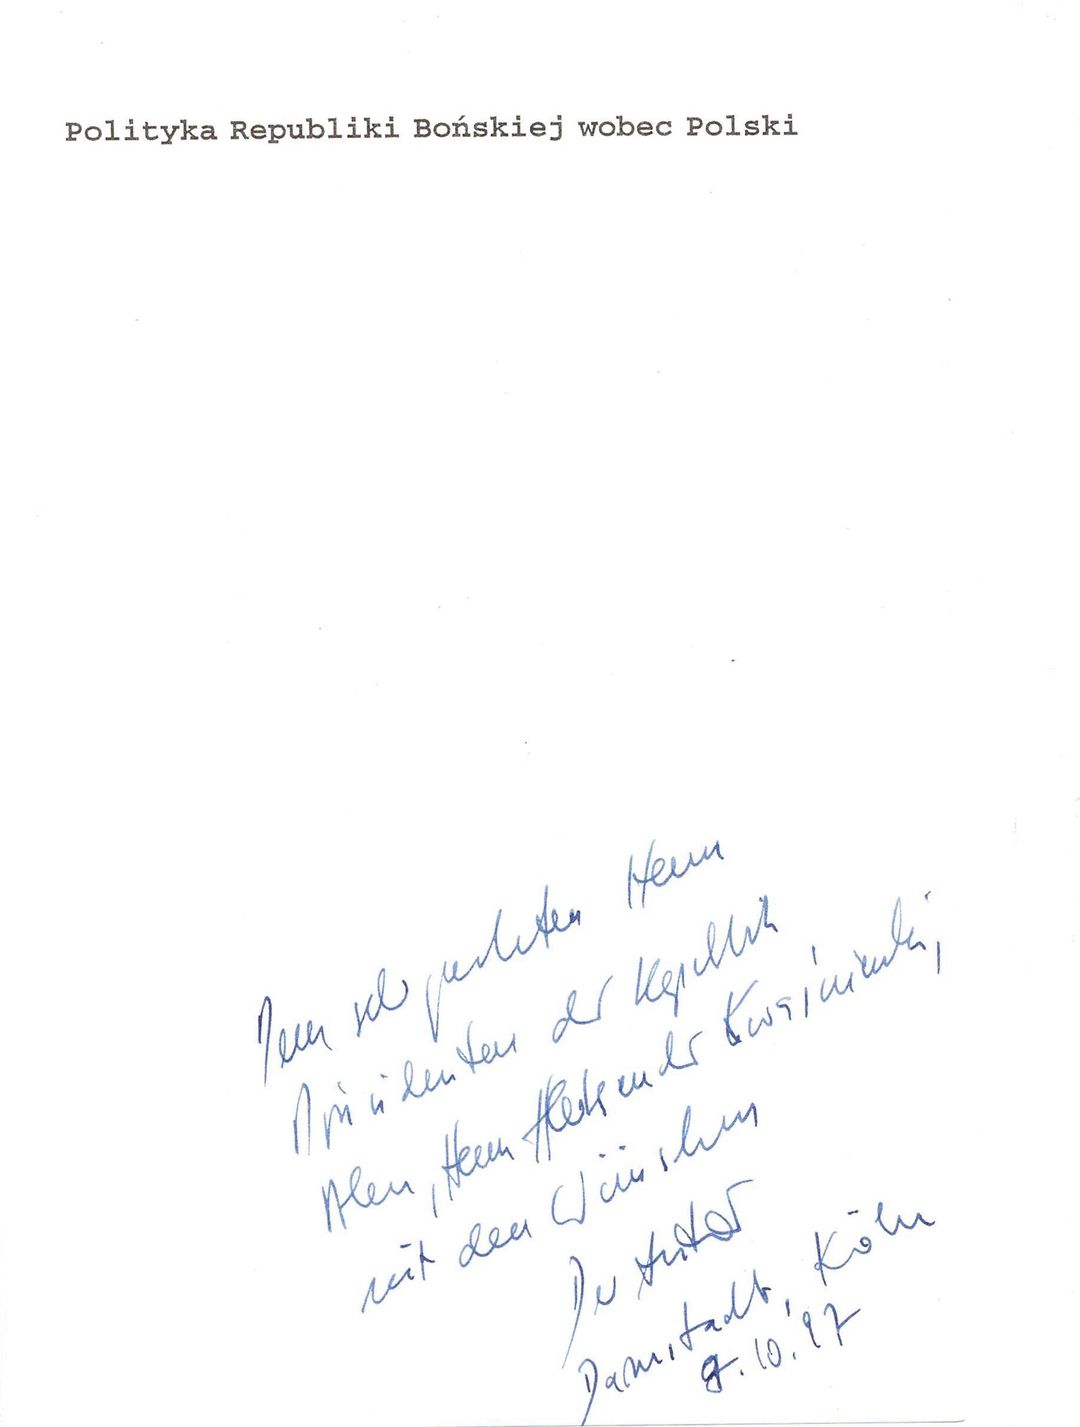 Polityka Republiki Bońskiej wobec Polski
Dem sehr geehrten Herrn
Präsidenten der Republik
Polen, Herrn Aleksander Kwaśniewski,
mit den Wünschen
Der Autor
Darmstadt, Köln
9.10.97